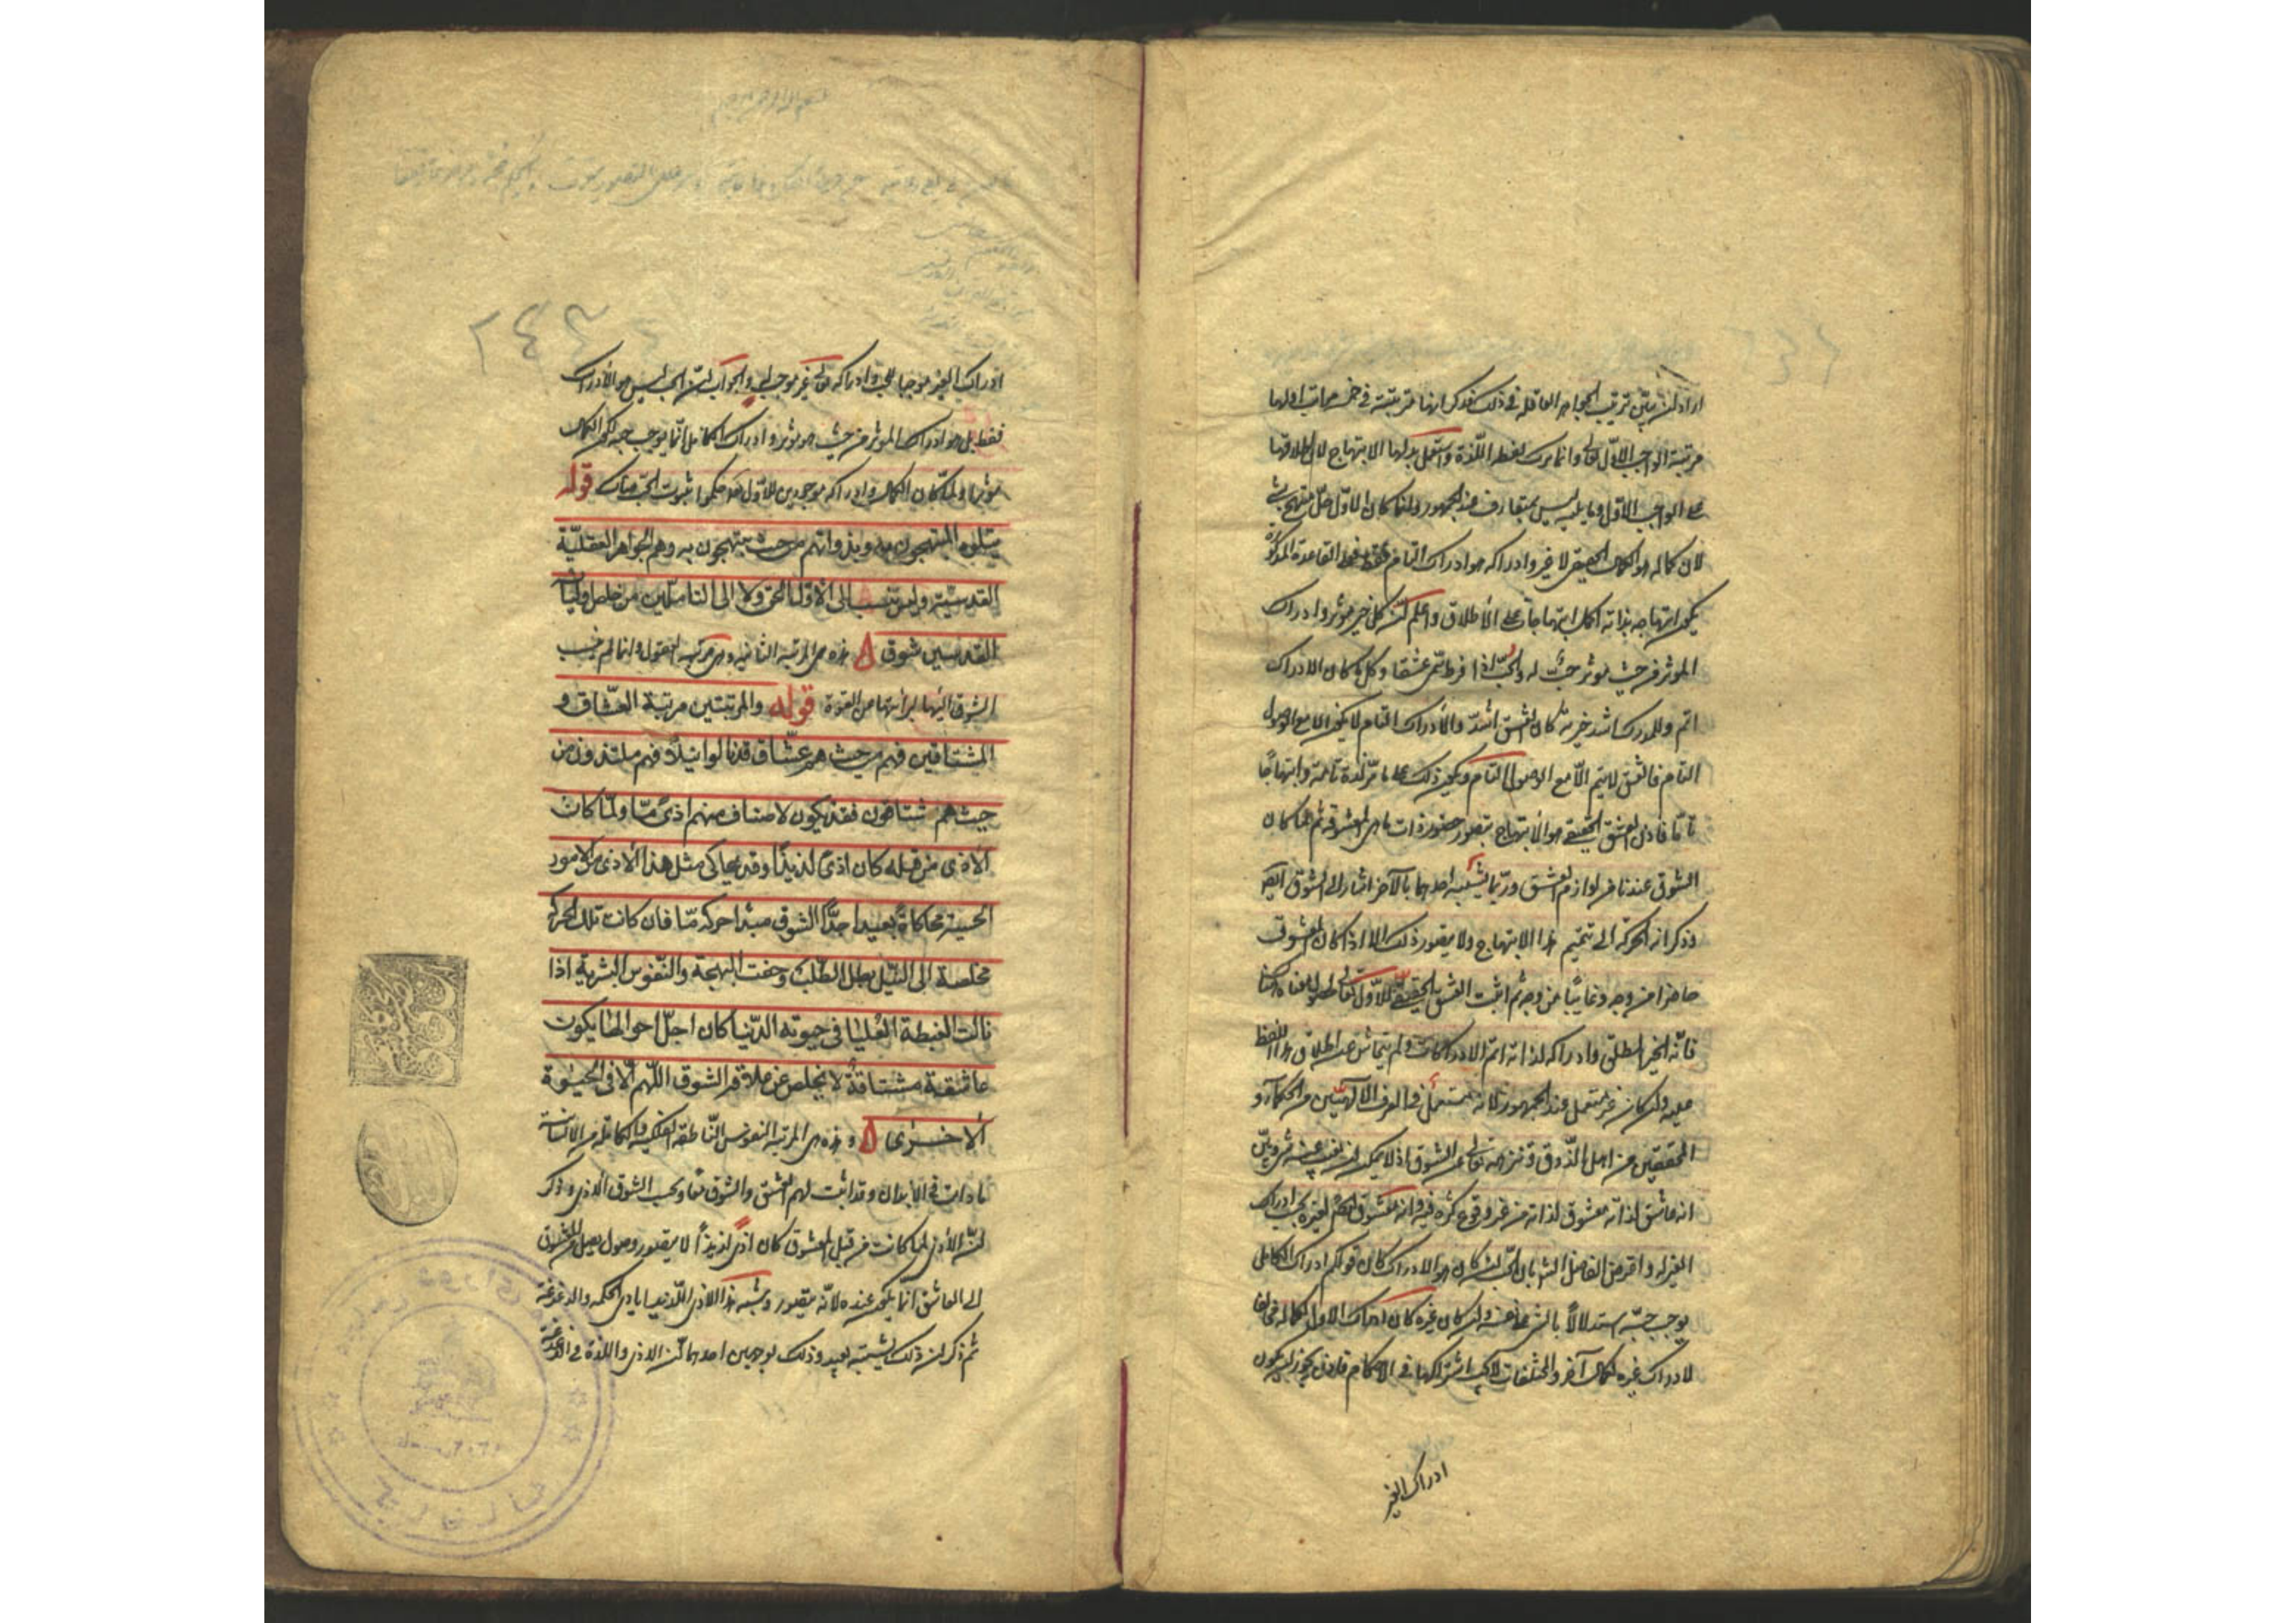 اراد ان يبيّن ترتيب الجواهر العاقله فى ذلك فذكر انها مترتبة فى خمس مراتب اولها
مرتبة الواجب الاوّل تعالى وانما ترك لفظه اللّذة واستعمل بدلها الابتهاج لان اطلاقها
على الواجب الاوّل وما يليه ليس بمتعارف عند الجمهور وانما كان الاوّل اجلّ مبتهج بشئ
لان كماله هو الكمال الحقيقى لا غير وادراكه هو ادراك التام فقط فعلى القاعدة المذكورة
يكون ابتهاجه بذاته اكمل ابتهاجات على الاطلاق واعلم انّ كل خير مؤثر وادراك
المؤثر من حيث مؤثر حبّ له والحبّ اذا افرط سمّى عشقا وكل ما كان الادراك
اتم والمدرك اشد خيرية كان العشق اشدّ والادراك التام لا يكون الا مع الوصول
التام فالعشق لا يتم الّا مع الوصول التام ويكون ذلك على ما مرّ لذة تامة وابتهاجًا
تامّا فاذن العشق الحقيقى هو الابتهاج بتصور حضور ذات ما هى المعشوقة ثم لما كان
الشوق عندنا من لوازم العشق وربّما يشتبه احدهما بالآخر اشار الى الشوق ايضا
وذكر انه الحركة الى تتميم هذا الابتهاج ولا يتصور ذلك الا اذا كان المعشوق
حاضرا من وجه وغايبًا من وجه ثم اثبت العشق الحقيقى للاوّل تعالى لحصول معناه هناك
فانّه الخير المطلق وادراكه لذاته اتمّ الادراكات ولم يتحاش عن اطلاق هذا اللفظ
عليه وان كان غير مستعمل عند الجمهور لانه مستعمل فى العرف الالهيّين من الحكماء و
المحققين من اهل الذوق ونزهه تعالى عن الشوق اذ لا يمكن ان يغيب عنه شئ وبيّن
انه عاشق لذاته معشوق لذاته من غير وقوع كثرة فيه وانه معشوق ايضا لغيره بحسب ادراك
الغير له واعترض الفاضل الشارح بان الحبّ ان كان هو الادراك كان قولكم ادراك الكامل
يوجب حبّه استدلالًا بالشئ على نفسه وان كان غيره كان ادراك الاول لكماله مخالفا
لادراك غيره لكمال آخر والمختلفات لا يجب اشتراكها فى الاحكام فاذن يجوز ان يكون
ادراك الغير
ادراك الغير موجبا للحبّ وادراكه تعالى غير موجب له والجواب انّ الحب ليس هو الادراك
فقط بل هو ادراك المؤثر من حيث هو مؤثر وادراك الكامل انّما يوجب حبه لكون الكمال
مؤثرا ولمّا كان الكمال وادراكه موجودين للاوّل تعالى حكموا بثبوت الحبّ هناك قوله
ويتلوه المبتهجون به وبذواتهم من حيث هم مبتهجون به وهم الجواهر العقليّة
القدسيّة وليس ينسب الى الاوّل الحق ولا الى التاليين من خلص اوليائه
القدسيين شوق هذه هى المرتبة الثانية وهى مرتبة العقول وانما لم ينسب
الشوق اليها لبرائتها من القوة قوله والمرتبتين مرتبة العشّاق و
المشتاقين فهم من حيث هم عشّاق قد نالوا نيلًا فهم ملتذون ومن
حيث هم مشتاقون فقد يكون لاصناف منهم اذىً مّا ولمّا كان
الاذى من قبله كان اذىً لذيذًا وقد يحاكى مثل هذا الاذى من الامور
الحسية محاكاة بعيدا جدًّا الشوق مبدا حركة مّا فان كانت تلك الحركة
مخلصة الى النّيل بطل الطّلب وحقت البهجة والنّفوس البشرية اذا
نالت الغبطة العُليا فى حيوته الدّنيا كان اجلّ احوالها ان يكون
عاشقة مشتاقة لا يخلص عن علاقة الشوق اللّهم الّا فى الحيوة
الاخرى وهذه هى المرتبة النفوس النّاطقة الفلكية والكاملة من الانسانية
ما دامت فى الابدان وقد اثبت لهم العشق والشوق معًا وبحسب الشوق الاذى وذكر
انّ الاذى لما كانت من قبل المعشوق كان اذىً لذيذًا لا يتصور وصول يصل من المعشوق
الى العاشق انما يكون عنده لانّه يتصور ويشبه هذا الاذى اللّذيذ باذى الحكه والدغدغة
ثم ذكر ان ذلك تشبيه بعيد وذلك لوجهين احدهما انّ الاذى واللذة فى الدغدغة